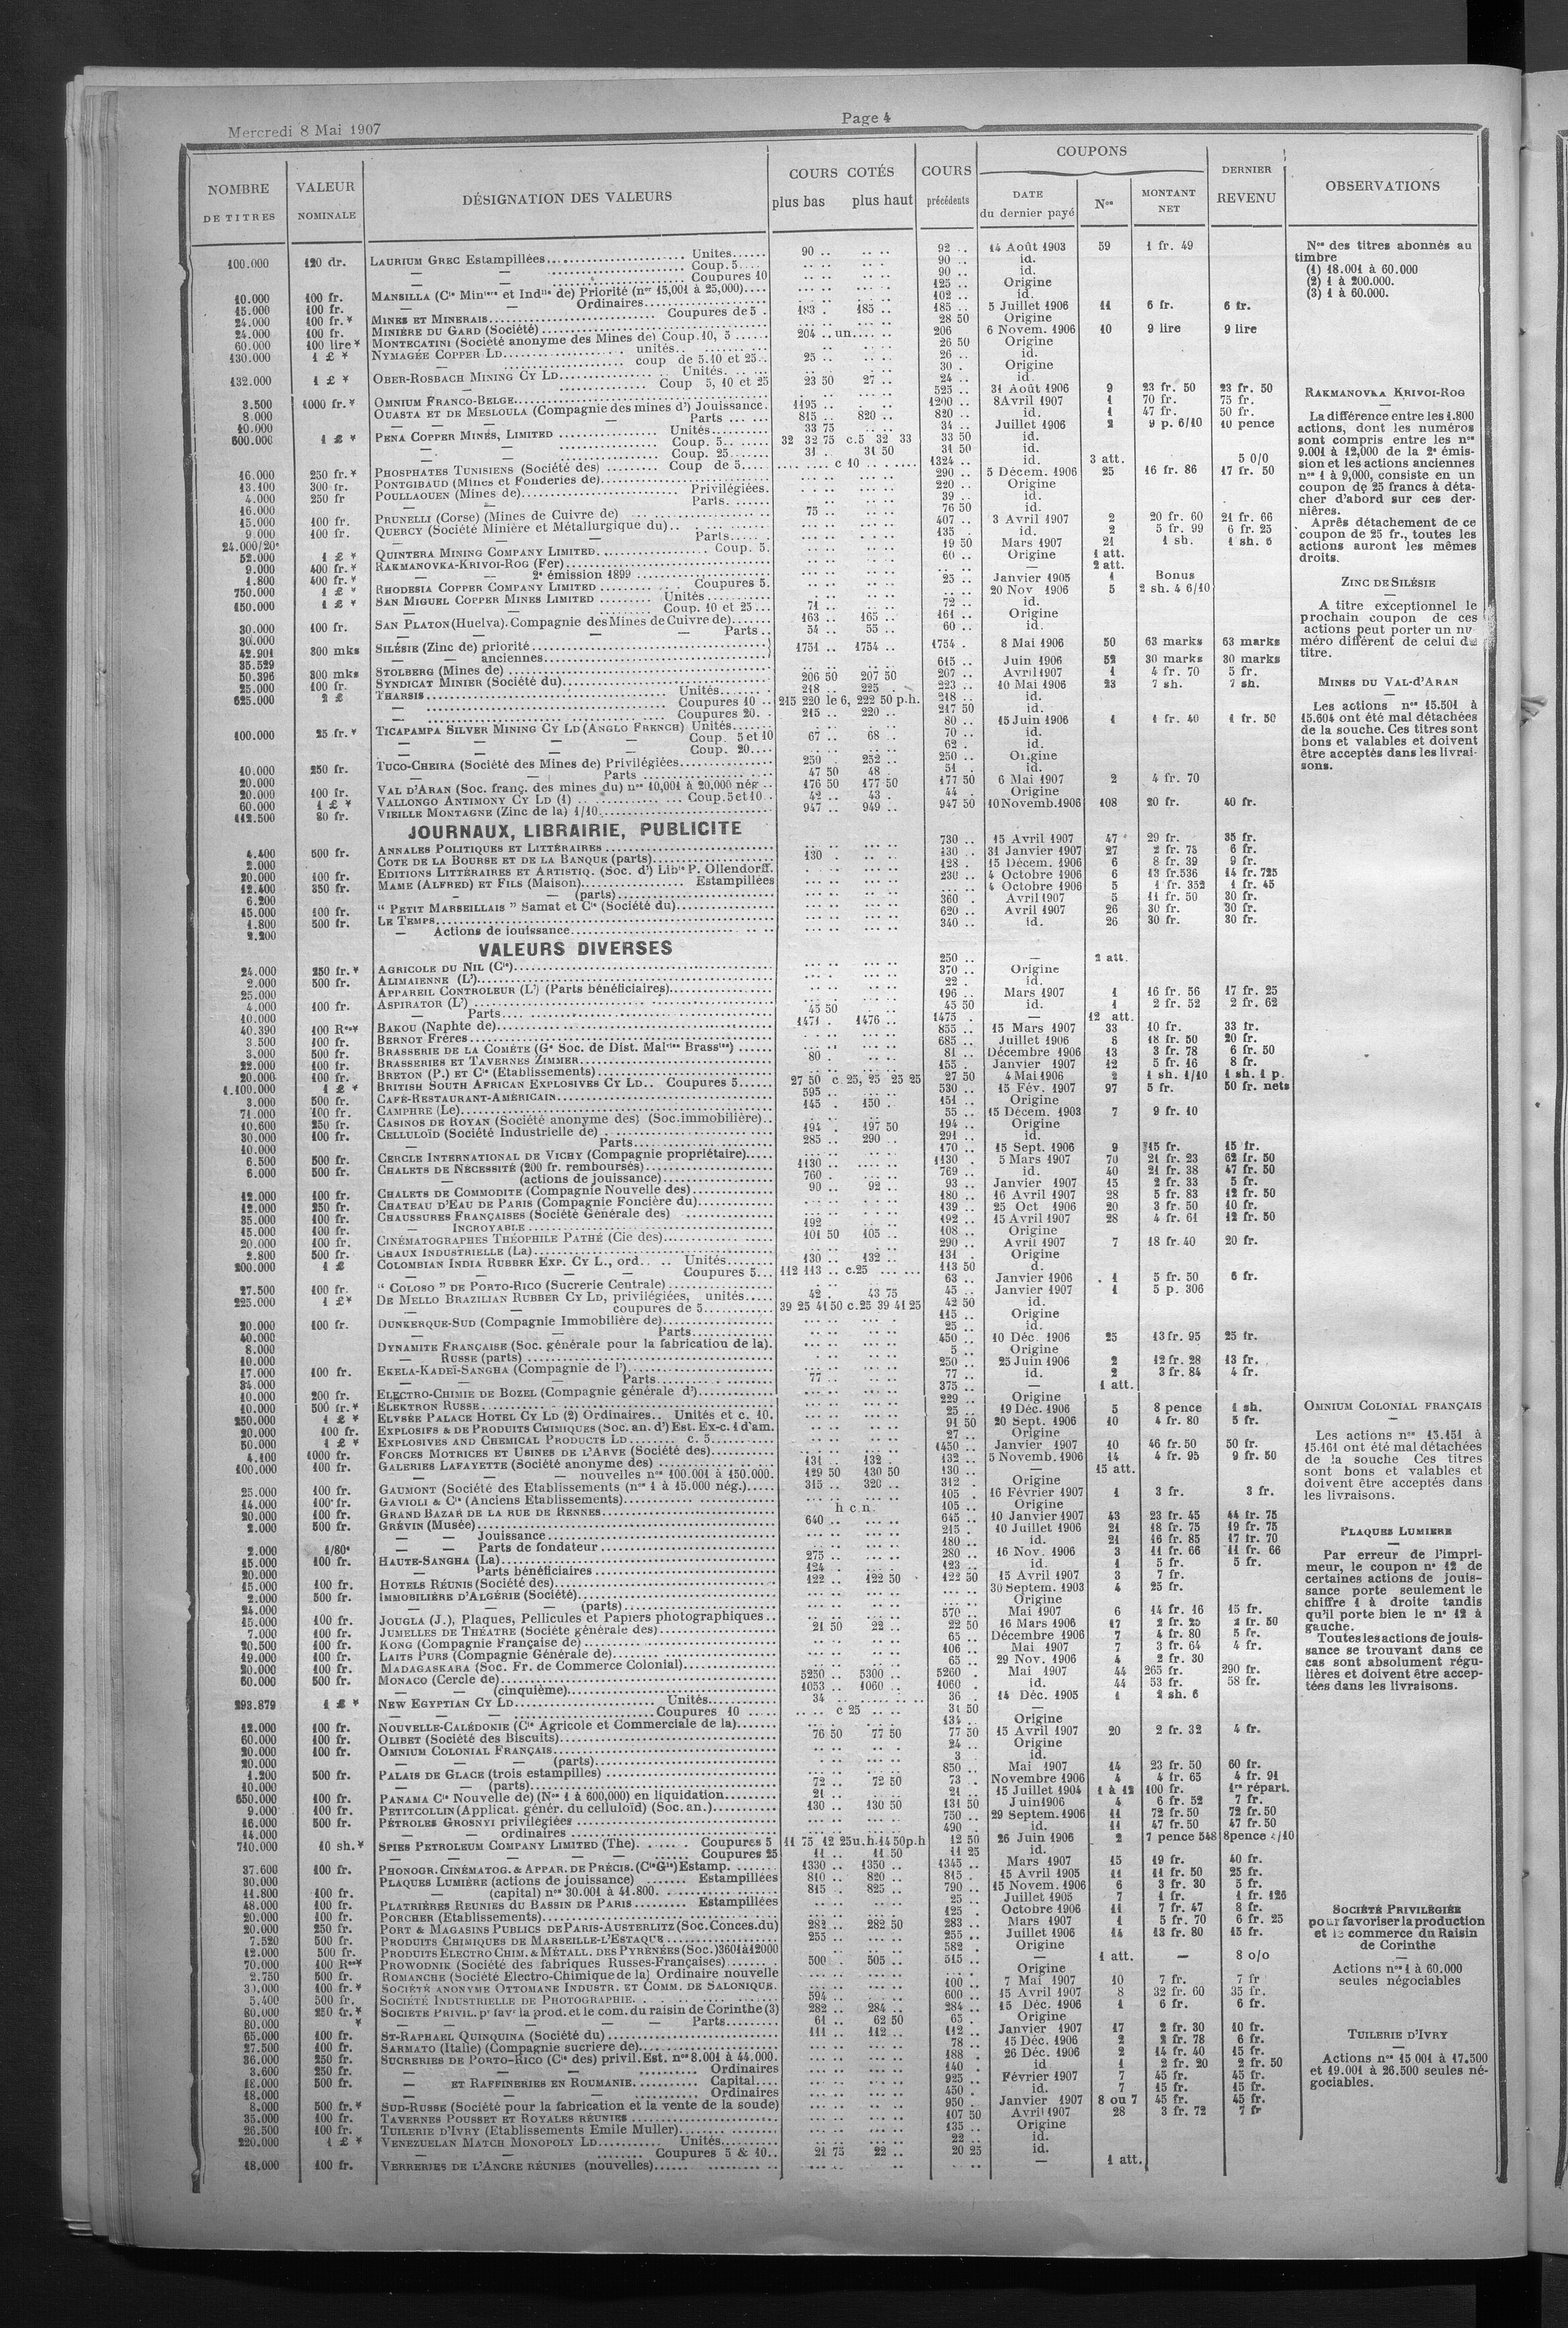 Mercredi 8 Mai 1907
Page 4
NOMBRE DE TITRES
VALEUR NOMINALE
DÉSIGNATION DES VALEURS
COURS COTÉS
plus bas plus haut
COURS précédents
COUPONS
DATE du dernier payé
Nos
MONTANT NET
DERNIER REVENU
OBSERVATIONS
100.000 120 dr. LAURIUM GREC Estampillées Unites 90 .. 92 .. 14 Août 1903 59 1 fr. 49
— — Coup. 5 90 .. id.
— — Coupures 10 90 .. id.
10.000 100 fr. MANSILLA (Cie Minière et Indlle de) Priorité (nos 15,001 à 25,000) 125 .. Origine
15.000 100 fr. — — Ordinaires 102 .. id.
24.000 100 fr.* MINES ET MINERAIS Coupures de 5 183 . 185 .. 185 .. 5 Juillet 1906 11 6 fr. 6 fr.
24.000 100 fr. MINIÈRE DU GARD (Société) 28 50 Origine
60.000 100 lire* MONTECATINI (Société anonyme des Mines de) Coup. 10, 5 204 .. un 206 6 Novem. 1906 10 9 lire 9 lire
130.000 1 £ * NYMAGÉE COPPER LD unités 26 50 Origine
— coup de 5.10 et 25 25 .. 26 .. id.
132.000 1 £ * OBER-ROSBACH MINING CY LD Unités 30 . Origine
— Coup 5, 10 et 25 23 50 27 .. 24 .. id.
3.500 1000 fr.* OMNIUM FRANCO-BELGE 525 .. 31 Août 1906 9 23 fr. 50 23 fr. 50
8.000 OUASTA ET DE MESLOULA (Compagnie des mines d') Jouissance 1195 .. 1200 .. 8 Avril 1907 1 70 fr. 75 fr.
10.000 — — Parts 815 .. 820 .. 820 .. id. 1 47 fr. 50 fr.
600.000 1 £ * PENA COPPER MINES, LIMITED Unités 33 75 34 .. Juillet 1906 2 9 p. 6/10 10 pence
— Coup. 5 32 32 75 c.5 32 33 33 50 id.
— Coup. 25 31 . 31 50 31 50 id.
16.000 250 fr.* PHOSPHATES TUNISIENS (Société des) Coup de 5 c 10 1324 .. id. 3 att. 5 0/0
13.100 300 fr. PONTGIBAUD (Mines et Fonderies de) 290 .. 5 Décem. 1906 25 16 fr. 86 17 fr. 50
4.000 250 fr POULLAOUEN (Mines de) Privilégiées 220 .. Origine
16.000 — — Parts 39 .. id.
15.000 100 fr. PRUNELLI (Corse) (Mines de Cuivre de) 75 .. 76 50 id.
9.000 100 fr. QUERCY (Société Minière et Métallurgique du) 407 .. 3 Avril 1907 2 20 fr. 60 21 fr. 66
24.000/20e — Parts 135 . id. 2 5 fr. 99 6 fr. 25
52.000 1 £ * QUINTERA MINING COMPANY LIMITED Coup. 5 19 50 Mars 1907 21 1 sh. 1 sh. 6
9.000 400 fr.* RAKMANOVKA-KRIVOI-ROG (Fer) 60 .. Origine 1 att.
1.800 400 fr.* — — 2e émission 1899 — 2 att.
750.000 1 £ * RHODESIA COPPER COMPANY LIMITED Coupures 5 25 .. Janvier 1905 1 Bonus
150.000 1 £ * SAN MIGUEL COPPER MINES LIMITED Unités 20 Nov 1906 5 2 sh. 4 6/10
— Coup. 10 et 25 71 .. 72 .. id.
30.000 100 fr. SAN PLATON (Huelva). Compagnie des Mines de Cuivre de) 163 .. 165 .. 161 .. Origine
30.000 — — Parts 54 .. 55 .. 60 .. id.
42.901 300 mks SILÉSIE (Zinc de) priorité 1751 .. 1754 .. 1754 . 8 Mai 1906 50 63 marks 63 marks
35.529 — — anciennes
50.396 300 mks STOLBERG (Mines de) 615 .. Juin 1906 52 30 marks 30 marks
25.000 100 fr. SYNDICAT MINIER (Société du) 206 50 207 50 207 .. Avril 1907 1 4 fr. 70 5 fr.
625.000 2 £ THARSIS Unités 218 .. 225 . 223 .. 10 Mai 1906 23 7 sh. 7 sh.
— Coupures 10 215 220 le 6, 222 50 p.h. 218 .. id.
— Coupures 20 215 .. 220 .. 217 50 id.
100.000 25 fr.* TICAPAMPA SILVER MINING CY LD (ANGLO FRENCH) Unités 80 .. 15 Juin 1906 1 1 fr. 40 1 fr. 50
— — Coup. 5 et 10 67 .. 68 . 70 .. id.
— — Coup. 20 62 . id.
10.000 250 fr. TUCO-CHEIRA (Société des Mines de) Privilégiées 250 . 252 .. 250 .. Origine
20.000 — — Parts 47 50 48 51 . id.
20.000 100 fr. VAL D'ARAN (Soc. franç. des mines du) nos 10,001 à 20,000 nég 176 50 177 50 177 50 6 Mai 1907 2 4 fr. 70
60.000 1 £ * VALLONGO ANTIMONY CY LD (1) Coup. 5 et 10 42 .. 43 . 44 . Origine
112.500 80 fr. VIEILLE MONTAGNE (Zinc de la) 1/10 947 .. 949 .. 947 50 10 Novemb. 1906 108 20 fr. 40 fr.
JOURNAUX, LIBRAIRIE, PUBLICITE
4.400 500 fr. ANNALES POLITIQUES ET LITTÉRAIRES 730 .. 15 Avril 1907 47 29 fr. 35 fr.
2.000 COTE DE LA BOURSE ET DE LA BANQUE (parts) 130 . 130 .. 31 Janvier 1907 27 2 fr. 75 6 fr.
20.000 100 fr. EDITIONS LITTÉRAIRES ET ARTISTIQ. (Soc. d') Libie P. Ollendorff. 128 . 15 Décem. 1906 6 8 fr. 39 9 fr.
12.400 350 fr. MAME (ALFRED) ET FILS (Maison) Estampillées 230 .. 4 Octobre 1906 6 13 fr.536 14 fr. 725
6.200 — — (parts) 4 Octobre 1906 5 1 fr. 352 1 fr. 45
15.000 100 fr. “ PETIT MARSEILLAIS ” Samat et Cie (Société du) 360 . Avril 1907 5 11 fr. 50 30 fr.
1.800 500 fr. LE TEMPS 620 .. Avril 1907 26 30 fr. 30 fr.
2.200 — Actions de jouissance 340 .. id. 26 30 fr. 30 fr.
VALEURS DIVERSES
24.000 250 fr.* AGRICOLE DU NIL (Cie) 250 .. — 2 att.
2.000 500 fr. ALIMAIENNE (L') 370 .. Origine
25.000 APPAREIL CONTROLEUR (L') (Parts bénéficiaires) 22 . id.
4.000 100 fr. ASPIRATOR (L') 196 .. Mars 1907 1 16 fr. 56 17 fr. 25
10.000 — Parts 45 50 45 50 id. 1 2 fr. 52 2 fr. 62
40.390 100 Res* BAKOU (Naphte de) 1471 . 1476 .. 1475 . — 12 att.
3.500 100 fr. BERNOT FRÈRES 855 .. 15 Mars 1907 33 10 fr. 33 fr.
3.000 500 fr. BRASSERIE DE LA COMÈTE (Ge Soc. de Dist. Malries Brassies) 685 .. Juillet 1906 6 18 fr. 50 20 fr.
22.000 100 fr. BRASSERIES ET TAVERNES ZIMMER 80 . 81 .. Décembre 1906 13 3 fr. 78 6 fr. 50
20.000 100 fr. BRETON (P.) ET Cie (Etablissements) 155 . Janvier 1907 12 5 fr. 16 8 fr.
1.100.000 1 £ * BRITISH SOUTH AFRICAN EXPLOSIVES CY LD Coupures 5 27 50 c. 25, 25 25 25 27 50 4 Mai 1906 2 1 sh. 1/10 1 sh. 1 p.
3.000 500 fr. CAFÉ-RESTAURANT-AMÉRICAIN 595 .. 530 .. 15 Fév. 1907 97 5 fr. 50 fr. nets
71.000 100 fr. CAMPHRE (Le) 145 . 150 . 151 .. Origine
10.600 250 fr. CASINOS DE ROYAN (Société anonyme des) (Soc. immobilière) 55 .. 15 Décem. 1903 7 9 fr. 10
30.000 100 fr. CELLULOÏD (Société Industrielle de) 194 . 197 50 194 .. Origine
10.000 — Parts 285 .. 290 .. 291 .. id.
6.500 500 fr. CERCLE INTERNATIONAL DE VICHY (Compagnie propriétaire) 170 .. 15 Sept. 1906 9 15 fr. 15 fr.
6.000 500 fr. CHALETS DE NÉCESSITÉ (200 fr. remboursés) 1130 .. 1130 . 5 Mars 1907 70 21 fr. 23 62 fr. 50
— (actions de jouissance) 760 . 769 .. id. 40 21 fr. 38 47 fr. 50
12.000 100 fr. CHALETS DE COMMODITE (Compagnie Nouvelle des) 90 .. 92 .. 93 .. Janvier 1907 15 2 fr. 33 5 fr.
12.000 250 fr. CHATEAU D'EAU DE PARIS (Compagnie Foncière du) 180 .. 16 Avril 1907 28 5 fr. 83 12 fr. 50
35.000 100 fr. CHAUSSURES FRANÇAISES (Société Générale des) 139 .. 25 Oct 1906 20 3 fr. 50 10 fr.
15.000 100 fr. — INCROYABLE 192 192 .. 15 Avril 1907 28 4 fr. 61 12 fr. 50
20.000 100 fr. CINÉMATOGRAPHES THÉOPHILE PATHÉ (Cie des) 101 50 105 .. 108 .. Origine
2.800 500 fr. CHAUX INDUSTRIELLE (La) 290 .. Avril 1907 7 18 fr. 40 20 fr.
200.000 1 £ COLOMBIAN INDIA RUBBER EXP. CY L., ord. Unités 130 .. 132 .. 131 . Origine
— — Coupures 5 112 113 .. c.25 113 50 d.
27.500 100 fr. “ COLOSO ” DE PORTO-RICO (Sucrerie Centrale) 63 .. Janvier 1906 1 5 fr. 50 6 fr.
225.000 1 £* DE MELLO BRAZILIAN RUBBER CY LD, privilégiées, unités 42 . 43 75 45 .. Janvier 1907 1 5 p. 306
— — coupures de 5 39 25 41 50 c.25 39 41 25 42 50 id.
20.000 100 fr. DUNKERQUE-SUD (Compagnie Immobilière de) 115 .. Origine
40.000 — — Parts 25 .. id.
8.000 DYNAMITE FRANÇAISE (Soc. générale pour la fabrication de la) 450 .. 10 Déc. 1906 25 13 fr. 95 25 fr.
10.000 — RUSSE (parts) 5 .. Origine
17.000 100 fr. EKELA-KADEÏ-SANGHA (Compagnie de l') 250 .. 25 Juin 1906 2 12 fr. 28 13 fr.
34.000 — — Parts 77 .. 77 .. id. 2 3 fr. 84 4 fr.
10.000 200 fr. ELECTRO-CHIMIE DE BOZEL (Compagnie générale d') 375 .. — 1 att.
10.000 500 fr.* ELEKTRON RUSSE 229 .. Origine
250.000 1 £ * ELYSÉE PALACE HOTEL CY LD (2) Ordinaires Unités et c. 10. 25 .. 19 Déc. 1906 5 8 pence 1 sh.
20.000 100 fr. EXPLOSIFS & DE PRODUITS CHIMIQUES (Soc. an. d') Est. Ex-c. 1 d'am. 91 50 20 Sept. 1906 10 4 fr. 80 5 fr.
50.000 1 £ * EXPLOSIVES AND CHEMICAL PRODUCTS LD c. 5 27 .. Origine
4.100 1000 fr. FORCES MOTRICES ET USINES DE L'ARVE (Société des) 1450 .. Janvier 1907 10 46 fr. 50 50 fr.
100.000 100 fr. GALERIES LAFAYETTE (Société anonyme des) 131 .. 132 . 132 .. 5 Novemb. 1906 14 4 fr. 95 9 fr. 50
— — nouvelles nos 100.001 à 150.000. 129 50 130 50 130 .. — 15 att.
25.000 100 fr. GAUMONT (Société des Etablissements (nos 1 à 15.000 nég.) 315 .. 320 .. 312 . Origine
14.000 100 fr. GAVIOLI & Cie (Anciens Etablissements) 105 . 16 Février 1907 1 3 fr. 3 fr.
20.000 100 fr. GRAND BAZAR DE LA RUE DE RENNES h c n. 105 .. Origine
2.000 500 fr. GRÉVIN (Musée) 640 .. 645 .. 10 Janvier 1907 43 23 fr. 45 44 fr. 75
— — Jouissance 215 . 10 Juillet 1906 21 18 fr. 75 19 fr. 75
2.000 1/80e — — Parts de fondateur 180 .. id. 21 16 fr. 85 17 fr. 70
15.000 100 fr. HAUTE-SANGHA (La) 275 .. 280 .. 16 Nov. 1906 3 11 fr. 66 11 fr. 66
20.000 — Parts bénéficiaires 124 . 123 .. id. 1 5 fr. 5 fr.
15.000 100 fr. HOTELS RÉUNIS (Société des) 122 .. 122 50 122 50 15 Avril 1907 3 7 fr.
2.000 500 fr. IMMOBILIÈRE D'ALGÉRIE (Société) 30 Septem. 1903 4 25 fr.
24.000 — — (parts) Origine
15.000 100 fr. JOUGLA (J.), Plaques, Pellicules et Papiers photographiques 570 .. Mai 1907 6 14 fr. 16 15 fr.
7.000 100 fr. JUMELLES DE THÉATRE (Société générale des) 21 50 22 .. 22 50 16 Mars 1906 17 2 fr. 25 2 fr. 50
20.500 100 fr. KONG (Compagnie Française de) 65 .. Décembre 1906 7 4 fr. 80 5 fr.
19.000 100 fr. LAITS PURS (Compagnie Générale de) 106 .. Mai 1907 7 3 fr. 64 4 fr.
20.000 100 fr. MADAGASKARA (Soc. Fr. de Commerce Colonial) 65 .. 29 Nov. 1906 4 2 fr. 30
60.000 500 fr. MONACO (Cercle de) 5250 .. 5300 .. 5260 . Mai 1907 44 265 fr. 290 fr.
— — (cinquième) 1053 .. 1060 .. 1060 . id. 44 53 fr. 58 fr.
293.879 1 £ * NEW EGYPTIAN CY LD Unités 34 .. 36 . 14 Déc. 1905 1 2 sh. 6
Coupures 10 c 25 31 50 —
12.000 100 fr. NOUVELLE-CALÉDONIE (Cie Agricole et Commerciale de la) 134 .. Origine
60.000 100 fr. OLIBET (Société des Biscuits) 76 50 77 50 77 50 15 Avril 1907 20 2 fr. 32 4 fr.
20.000 100 fr. OMNIUM COLONIAL FRANÇAIS 24 .. Origine
20.000 — — (parts) 3 .. id.
1.200 500 fr. PALAIS DE GLACE (trois estampilles) 850 .. Mai 1907 14 23 fr. 50 60 fr.
10.000 — — (parts) 72 .. 72 50 73 . Novembre 1906 4 4 fr. 65 4 fr. 91
650.000 100 fr. PANAMA Cie Nouvelle de) (Nos 1 à 600,000) en liquidation 21 .. 21 .. 15 Juillet 1904 1 à 12 100 fr. 1re répart.
9.000 100 fr. PETITCOLLIN (Applicat. génér. du celluloïd) (Soc. an.) 130 .. 130 50 131 50 Juin 1906 4 6 fr. 52 7 fr.
16.000 500 fr. PÉTROLES GROSNYI privilégiées 750 .. 29 Septem. 1906 11 72 fr. 50 72 fr. 50
14.000 — — ordinaires 490 .. id. 11 47 fr. 50 47 fr. 50
710.000 10 sh.* SPIES PETROLEUM COMPANY LIMITED (The) Coupures 5 11 75 12 25 u.h. 14 50 p.h 12 50 26 Juin 1906 2 7 pence 548 8 pence /10
— — Coupures 25 11 .. 11 50 11 25 id.
37.600 100 fr. PHONOGR. CINÉMATOG. & APPAR. DE PRÉCIS. (Cie Gle) Estamp. 1330 .. 1350 .. 1345 .. Mars 1907 15 19 fr. 40 fr.
30.000 PLAQUES LUMIÈRE (actions de jouissance) Estampillées 810 .. 820 .. 815 . 15 Avril 1905 11 11 fr. 50 25 fr.
11.800 100 fr. — (capital) nos 30.001 à 41.800. 815 . 825 .. 790 .. 15 Novem. 1906 6 3 fr. 30 5 fr.
48.000 100 fr. PLATRIÈRES REUNIES DU BASSIN DE PARIS Estampillées 25 .. Juillet 1905 7 1 fr. 1 fr. 126
20.000 100 fr. PORCHER (Etablissements) 125 . Octobre 1906 11 7 fr. 47 8 fr.
20.000 250 fr. PORT & MAGASINS PUBLICS DE PARIS-AUSTERLITZ (Soc. Conces. du) 282 .. 282 50 283 .. Mars 1907 1 5 fr. 70 6 fr. 25
7.520 500 fr. PRODUITS CHIMIQUES DE MARSEILLE-L'ESTAQUE 255 .. 255 .. Juillet 1906 14 13 fr. 80 15 fr.
12.000 500 fr. PRODUITS ELECTRO CHIM. & MÉTALL. DES PYRÉNÉES (Soc.) 3601 à 12000 582 . Origine
70.000 100 Res* PROWODNIK (Société des fabriques Russes-Françaises) 500 . 505 .. 515 .. — 1 att. — 8 o/o
2.750 500 fr. ROMANCHE (Société Electro-Chimique de la) Ordinaire nouvelle Origine
30.000 100 fr.* SOCIÉTÉ ANONYME OTTOMANE INDUSTR. ET COMM. DE SALONIQUE. 100 .. 7 Mai 1907 10 7 fr. 7 fr
5.400 500 fr. SOCIÉTÉ INDUSTRIELLE DE PHOTOGRAPHIE 594 .. 600 .. 15 Avril 1907 8 32 fr. 60 35 fr.
80.000 250 fr.* SOCIETE PRIVIL. pr favr la prod. et le com. du raisin de Corinthe (3) 282 .. 284 .. 284 .. 15 Déc. 1906 1 6 fr. 6 fr.
80.000 * — — Parts 61 .. 62 50 65 . Origine
65.000 100 fr. ST-RAPHAEL QUINQUINA (Société du) 111 .. 112 .. 112 .. Janvier 1907 17 2 fr. 30 10 fr.
27.500 100 fr. SARMATO (Italie) (Compagnie sucriere de) 78 .. 15 Déc. 1906 2 2 fr. 78 6 fr.
36.000 250 fr. SUCRERIES DE PORTO-RICO (Cie des) privil. Est. nos 8.001 à 44.000. 188 . 26 Déc. 1906 2 14 fr. 40 15 fr.
3.600 250 fr. — — Ordinaires 140 . id 1 2 fr. 20 2 fr. 50
18.000 500 fr. — ET RAFFINERIES EN ROUMANIE Capital 925 .. Février 1907 7 45 fr. 45 fr.
18.000 — — Ordinaires 450 . id. 7 15 fr. 15 fr.
8.000 500 fr.* SUD-RUSSE (Société pour la fabrication et la vente de la soude) 950 . Janvier 1907 8 ou 7 45 fr. 45 fr.
35.000 100 fr. TAVERNES POUSSET ET ROYALES RÉUNIES 107 50 Avril 1907 28 3 fr. 72 7 fr
26.500 100 fr. TUILERIE D'IVRY (Etablissements Emile Muller) 135 .. Origine
220.000 1 £ * VENEZUELAN MATCH MONOPOLY LD Unités 22 .. id.
— — Coupures 5 & 10 21 75 22 .. 20 25 id.
18.000 100 fr. VERRERIES DE L'ANCRE RÉUNIES (nouvelles) — 1 att.
Nos des titres abonnés au
timbre
(1) 18.001 à 60.000
(2) 1 à 200.000.
(3) 1 à 60.000.
RAKMANOVKA KRIVOI-ROG
La différence entre les 1.800
actions, dont les numéros
sont compris entre les nos
9.001 à 12,000 de la 2e émis-
sion et les actions anciennes
nos 1 à 9,000, consiste en un
coupon de 25 francs à déta-
cher d'abord sur ces der-
nières.
Après détachement de ce
coupon de 25 fr., toutes les
actions auront les mêmes
droits.
ZINC DE SILÉSIE
A titre exceptionnel le
prochain coupon de ces
actions peut porter un nu
méro différent de celui du
titre.
MINES DU VAL-d'ARAN
Les actions nos 15.501 à
15.604 ont été mal détachées
de la souche. Ces titres sont
bons et valables et doivent
être acceptés dans les livrai-
sons.
OMNIUM COLONIAL FRANÇAIS
Les actions nos 15.451 à
15.461 ont été mal détachées
de la souche Ces titres
sont bons et valables et
doivent être acceptés dans
les livraisons.
PLAQUES LUMIERE
Par erreur de l'impri-
meur, le coupon no 12 de
certaines actions de jouis-
sance porte seulement le
chiffre 1 à droite tandis
qu'il porte bien le no 12 à
gauche.
Toutes les actions de jouis-
sance se trouvant dans ce
cas sont absolument régu-
lières et doivent être accep-
tées dans les livraisons.
SOCIÉTÉ PRIVILÉGIÉE
pour favoriser la production
et le commerce du Raisin
de Corinthe
Actions nos 1 à 60.000
seules négociables
TUILERIE D'IVRY
Actions nos 15 001 à 17.500
et 19.001 à 26.500 seules né-
gociables.